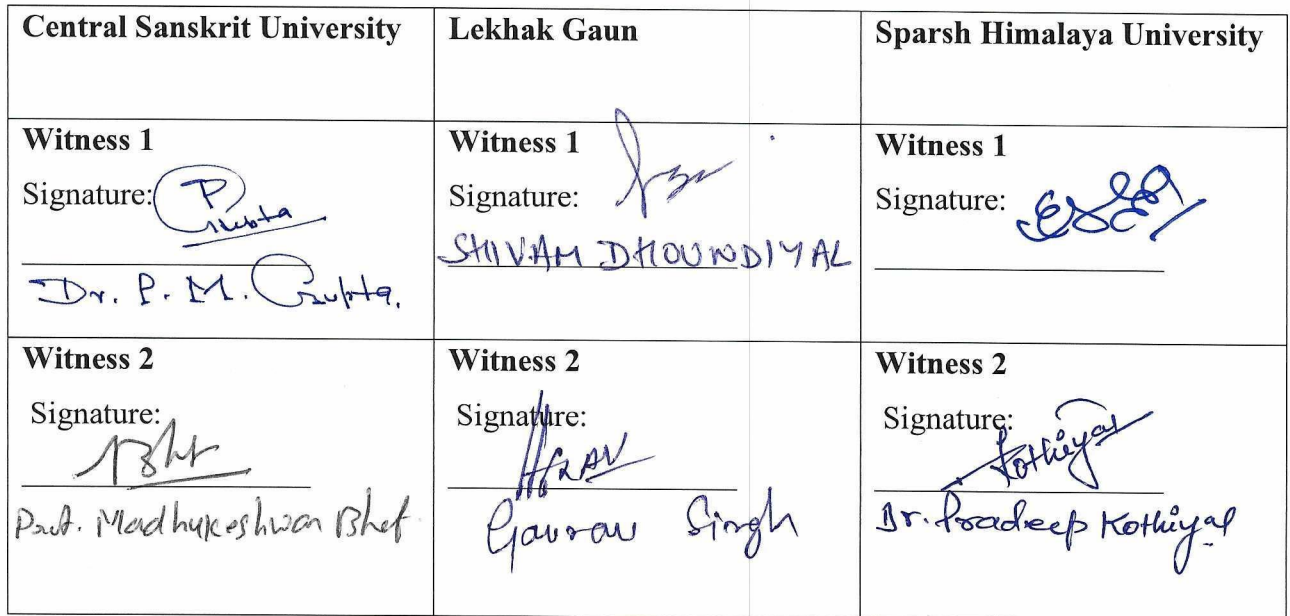 Central Sanskrit University
Lekhak Gaun
Sparsh Himalaya University
Witness 1
Signature:
Gupta
Dr. P. M. Gupta.
Witness 1
Signature:
SHIVAM DHOUNDIYAL
Witness 1
Signature:
Witness 2
Signature:
Bht
Prof. Madhukeshwar Bhat
Witness 2
Signature:
Gaurav Singh
Witness 2
Signature:
Kothiyal
Dr. Pradeep Kothiyal